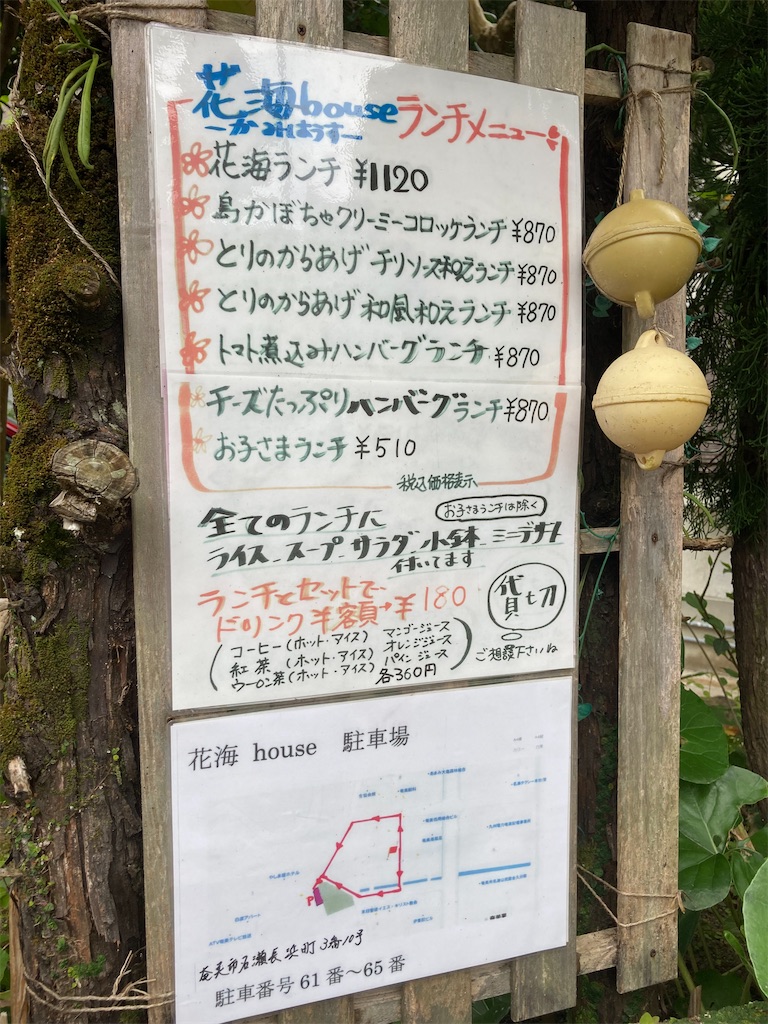 花海house ランチメニュー
ーかみはうすー
花海ランチ ¥1120
島かぼちゃクリーミーコロッケランチ ¥870
とりのからあげ チリソース和えランチ ¥870
とりのからあげ 和風和えランチ ¥870
トマト煮込みハンバーグランチ ¥870
チーズたっぷりハンバーグランチ ¥870
お子さまランチ ¥510
税込価格表示
お子さまランチは除く
全てのランチに
ライス スープ サラダ 小鉢 ミニデザート
付いてます
ランチとセットで
ドリンク半額→¥180
コーヒー(ホット・アイス) マンゴージュース
紅茶 (ホット・アイス) オレンジジュース
ウーロン茶(ホット・アイス) パインジュース
各360円
貸切
ご相談下さいね
花海 house 駐車場
P
奄美市名瀬長浜町3番10号
駐車番号61番～65番